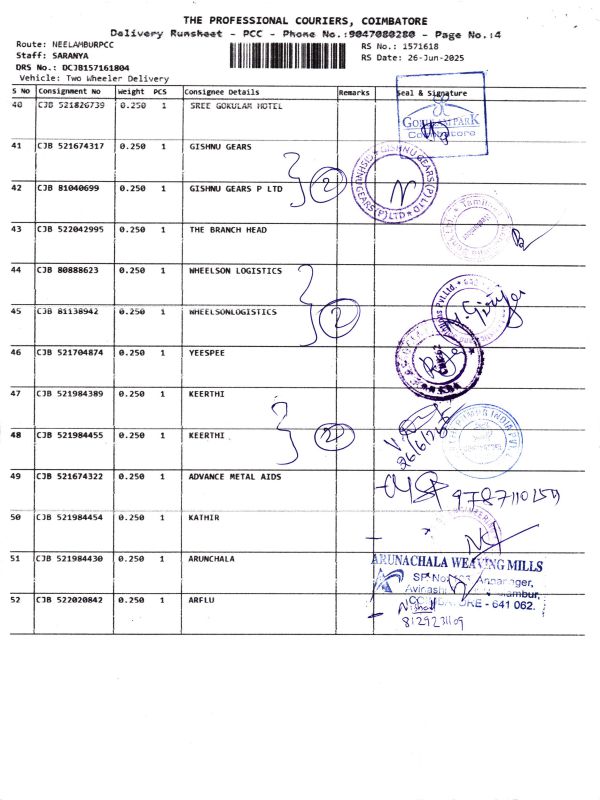 THE PROFESSIONAL COURIERS, COIMBATORE
Delivery Runsheet - PCC - Phone No.:9047080280 - Page No.:4
Route: NEELAMBURPCC
Staff: SARANYA
DRS No.: DCJB157161804
Vehicle: Two Wheeler Delivery
RS No.: 1571618
RS Date: 26-Jun-2025
S No Consignment No Weight PCS Consignee Details Remarks Seal & Signature
40 CJB 521826739 0.250 1 SREE GOKULAM HOTEL
41 CJB 521674317 0.250 1 GISHNU GEARS
2
42 CJB 81040699 0.250 1 GISHNU GEARS P LTD
43 CJB 522042995 0.250 1 THE BRANCH HEAD
44 CJB 80888623 0.250 1 WHEELSON LOGISTICS
2
45 CJB 81138942 0.250 1 WHEELSONLOGISTICS
46 CJB 521704874 0.250 1 YEESPEE
47 CJB 521984389 0.250 1 KEERTHI
2
48 CJB 521984455 0.250 1 KEERTHI
49 CJB 521674322 0.250 1 ADVANCE METAL AIDS
50 CJB 521984454 0.250 1 KATHIR
51 CJB 521984430 0.250 1 ARUNCHALA
ARUNACHALA WEAVING MILLS
641 062.
52 CJB 522020842 0.250 1 ARFLU
8129231109